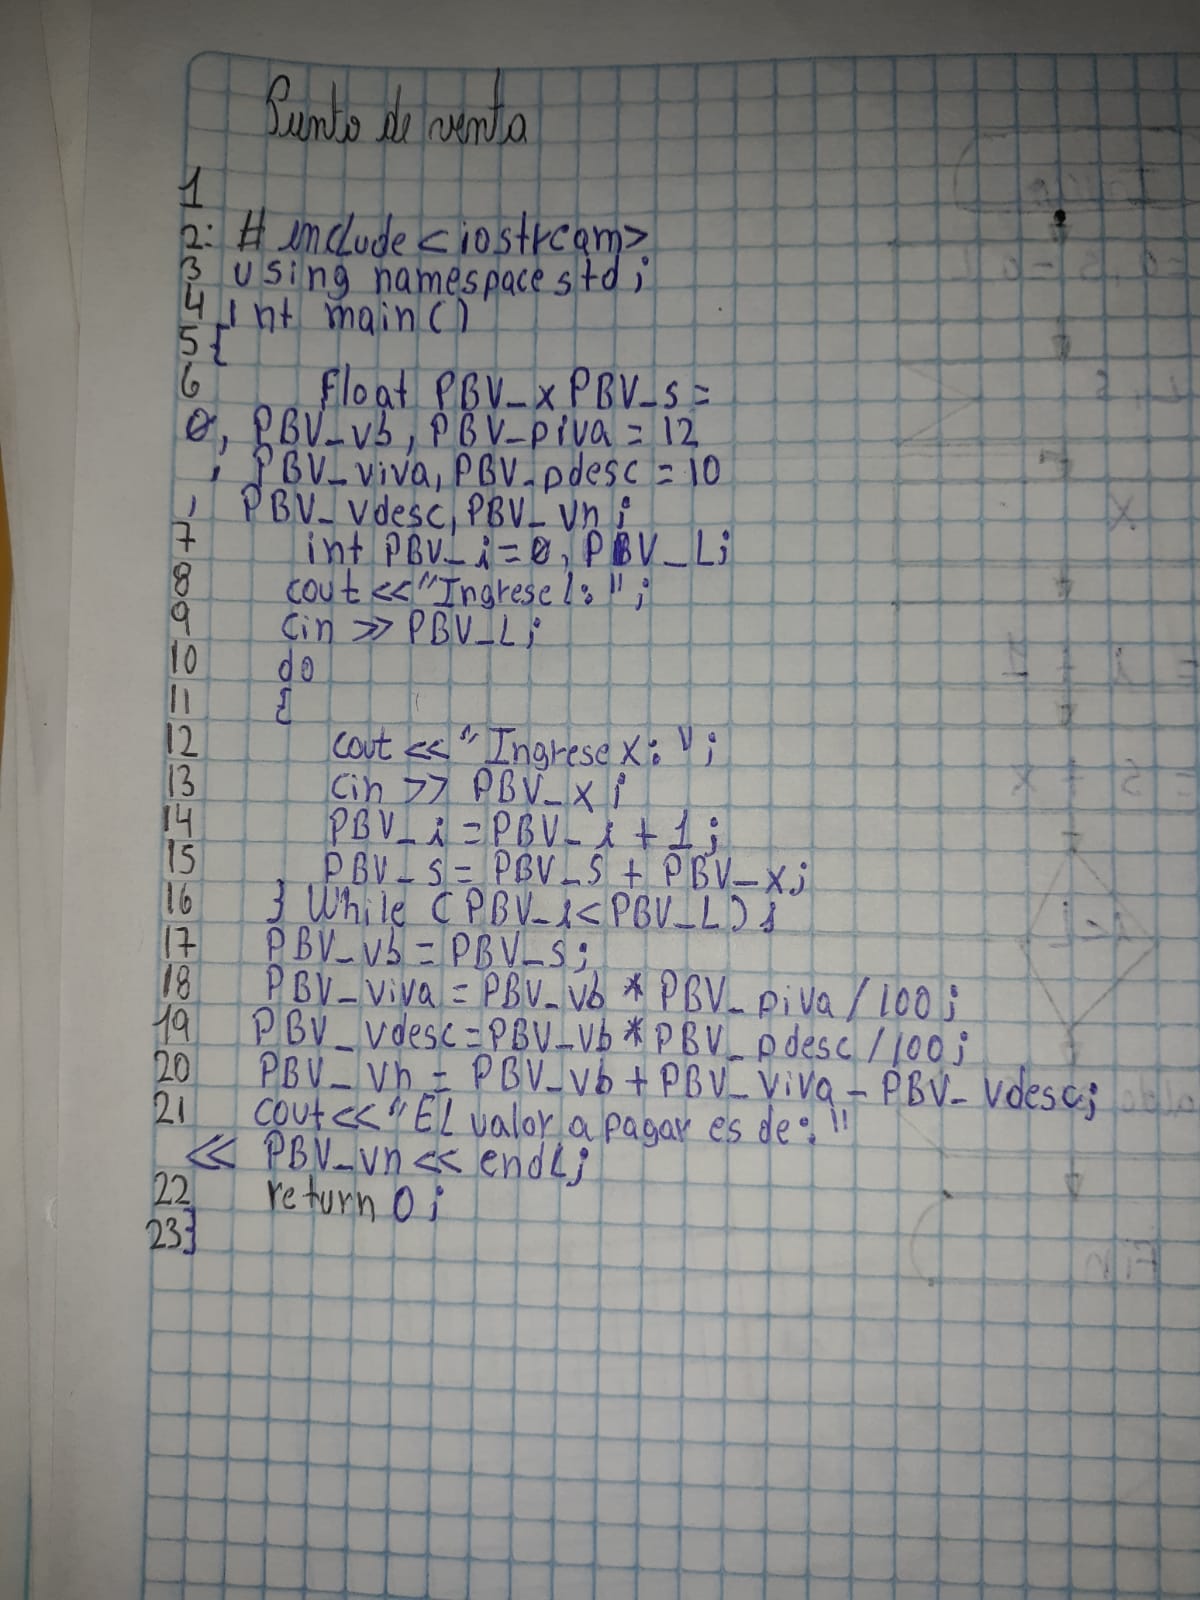 Punto de venta
1
2: # include <iostream>
3 using namespace std;
4 int main()
5 {
6 float PBV_x PBV_s =
0, PBV_vb, PBV_piva = 12
, PBV_viva, PBV_pdesc = 10
, PBV_vdesc, PBV_vn;
7 int PBV_i = 0, PBV_L;
8 cout << "Ingrese l: ";
9 cin >> PBV_L;
10 do
11 {
12 cout << "Ingrese x: ";
13 cin >> PBV_x;
14 PBV_i = PBV_i + 1;
15 PBV_s = PBV_s + PBV_x;
16 } While (PBV_i < PBV_L);
17 PBV_vb = PBV_s;
18 PBV_viva = PBV_vb * PBV_piva / 100;
19 PBV_vdesc = PBV_vb * PBV_pdesc / 100;
20 PBV_vn = PBV_vb + PBV_viva - PBV_vdesc;
21 cout << "El valor a pagar es de: "
<< PBV_vn << endl;
22 return 0;
23 }